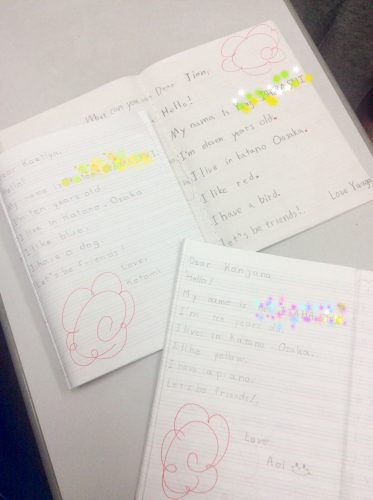 What can you
Dear Jinn,
Hello!
My name is
years old.
I live in katano Osaka.
I like red.
I have a bird.
Let's be friends!
Love
Dear Kaitlyn,
Hello!
name is
I'm ten years old
I live in Katano, Osaka
I like blue.
I have a dog.
Let's be friends!
Love,
Dear Kanjana
Hello!
My name is
I'm ten years old.
I live in katano Osaka.
I like yellow.
I have a piano.
Let's be friends!
Love,
Aoi